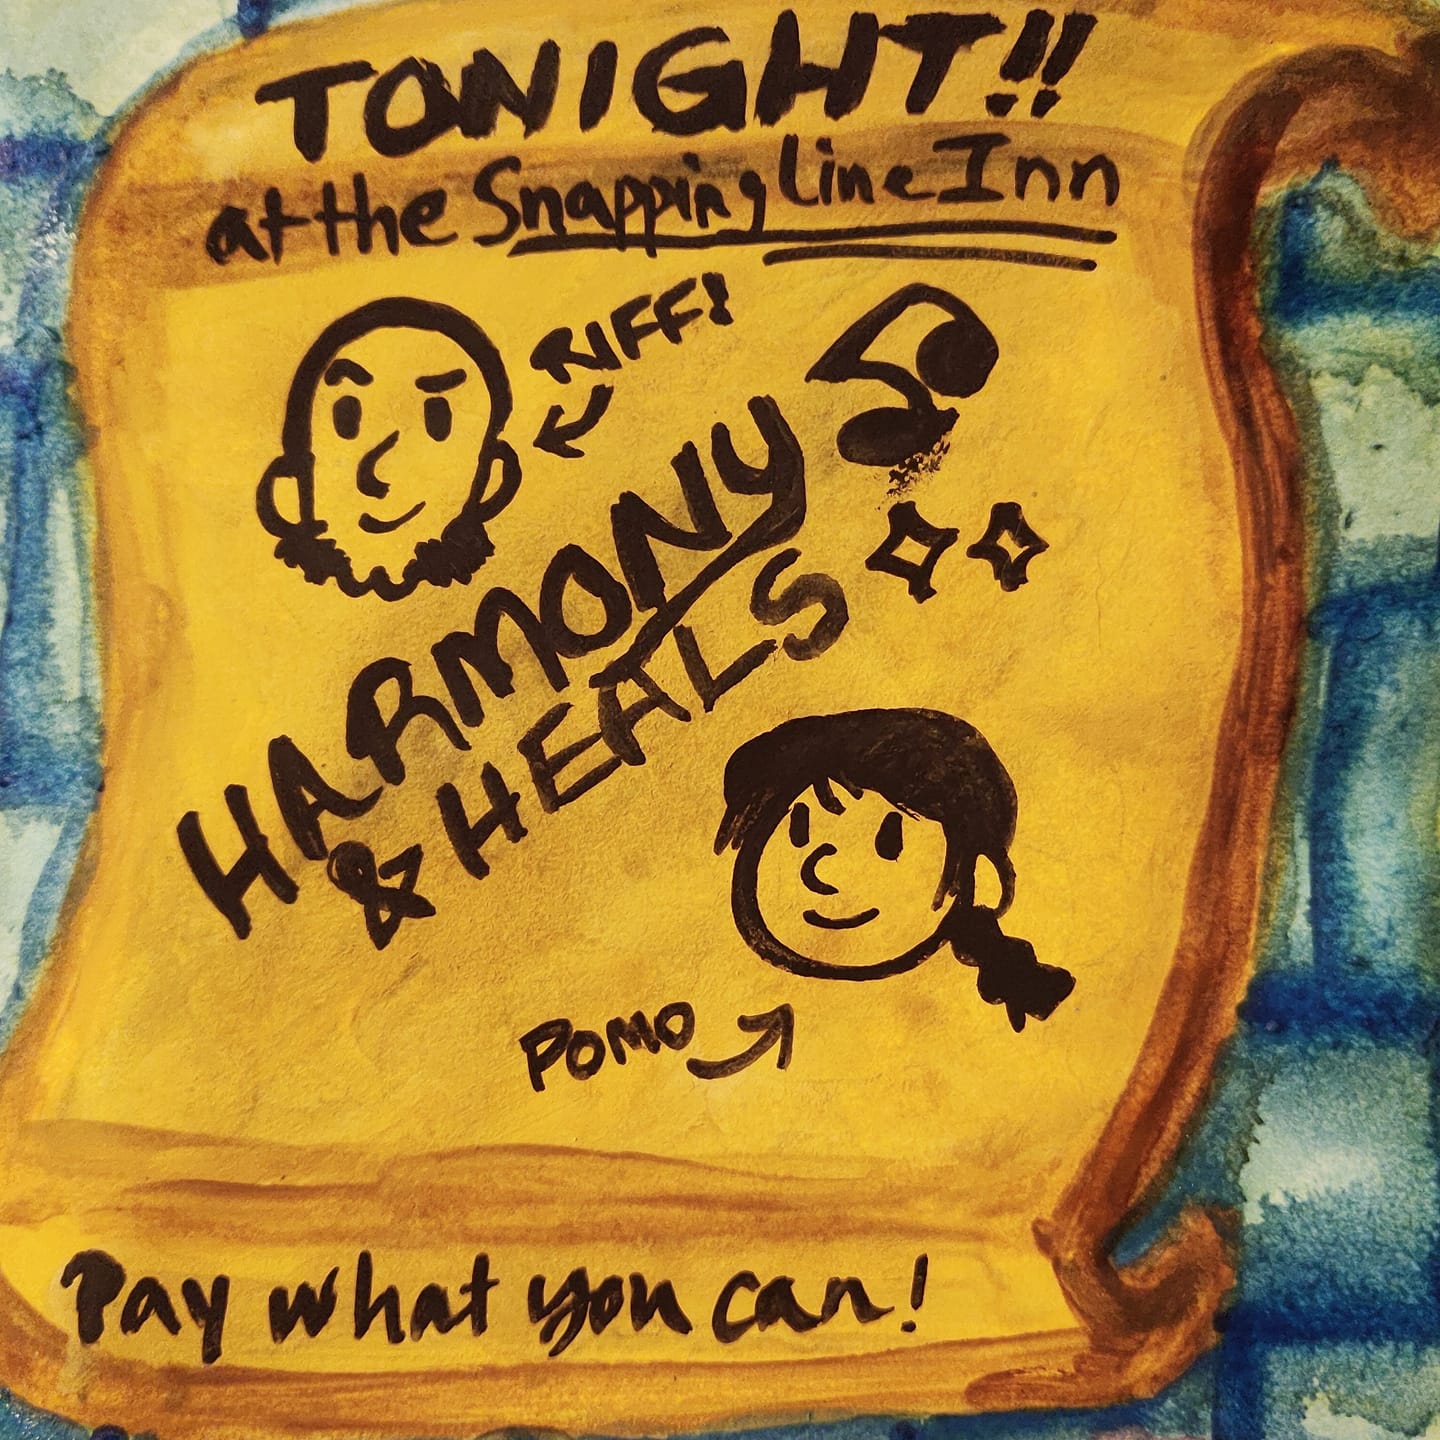 TONIGHT!!
at the Snapping Line Inn
RIFF!
HARMONY
& HEALS
POMO
Pay what you can!